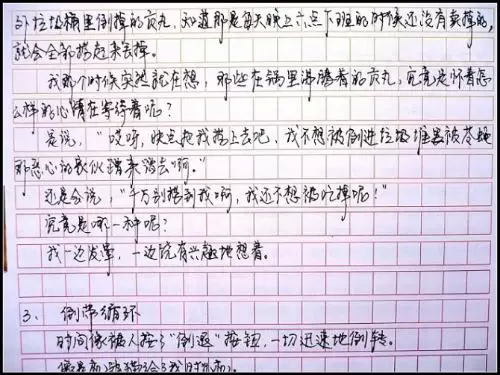 到垃圾桶里倒掉的贡丸，知道那是每天晚上六点下班的时候还没有卖掉的，
就会全部捞起来丢掉。
我那个时候突然就在想，那些在锅里沸腾着的贡丸，究竟是怀着怎
么样的心情在等待着呢？
是说，“哎呀，快点把我捞上去吧，我不想被倒进垃圾堆里被苍蝇
那恶心的家伙踏来踏去啊。”
还是会说，“千万别捞到我啊，我还不想被吃掉呢！”
究竟是哪一种呢？
我一边发晕，一边饶有兴趣地想着。
3、倒带循环
时间像被人按了“倒退”按钮，一切迅速地倒转。